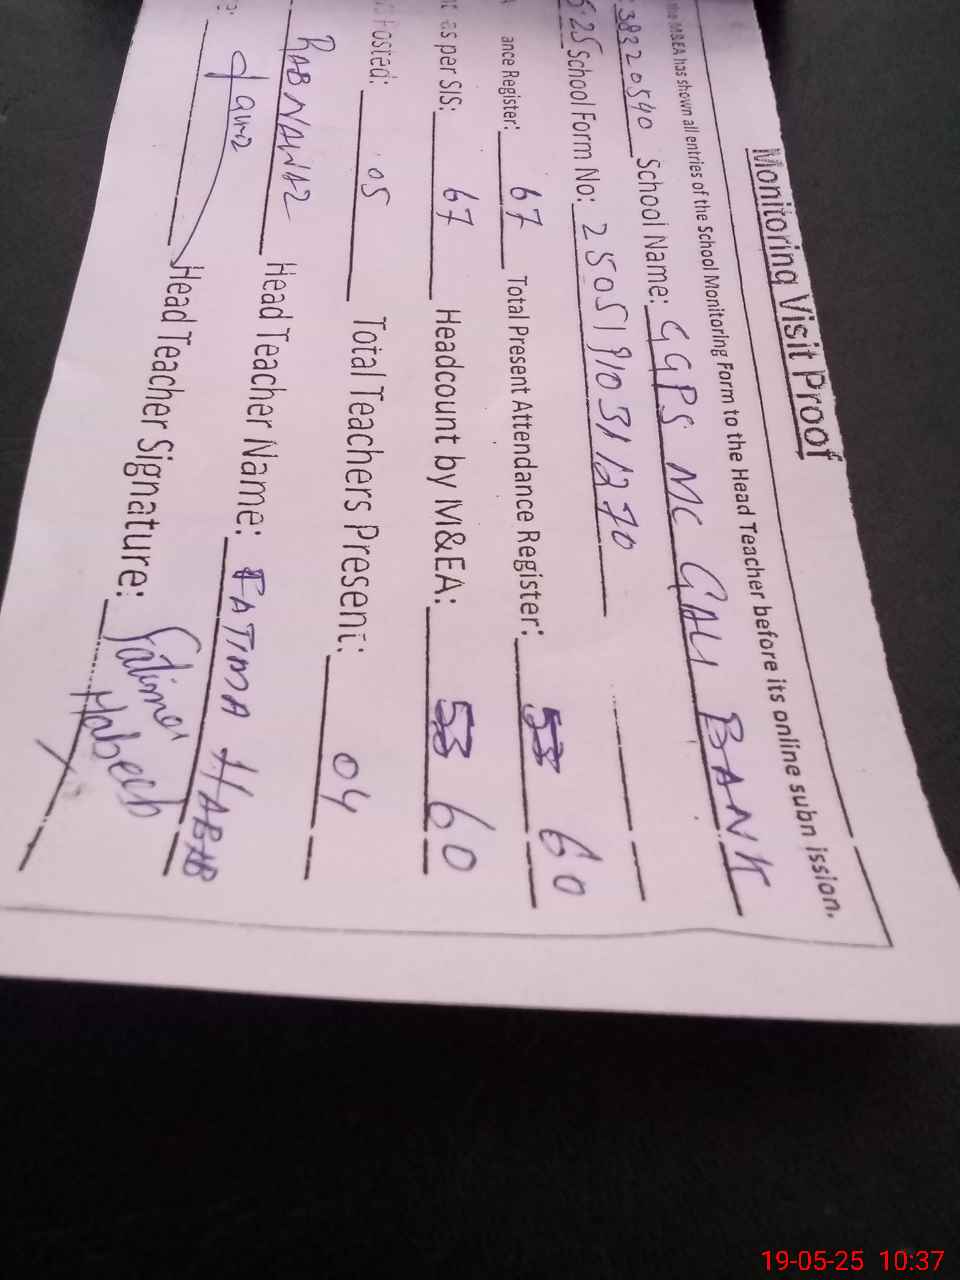 Monitoring Visit Proof
the M&EA has shown all entries of the School Monitoring Form to the Head Teacher before its online subn ission.
38220540 School Name: GGPS MC GALI BANK
5.25 School Form No: 2505191031270
ance Register: 67 Total Present Attendance Register: 53 60
as per SIS: 67 Headcount by M&EA: 53 60
Posted: 05 Total Teachers Present: 04
RAB NAWAZ Head Teacher Name: FATIMA HABAB
Head Teacher Signature: Fatima Habeeb
19-05-25 10:37